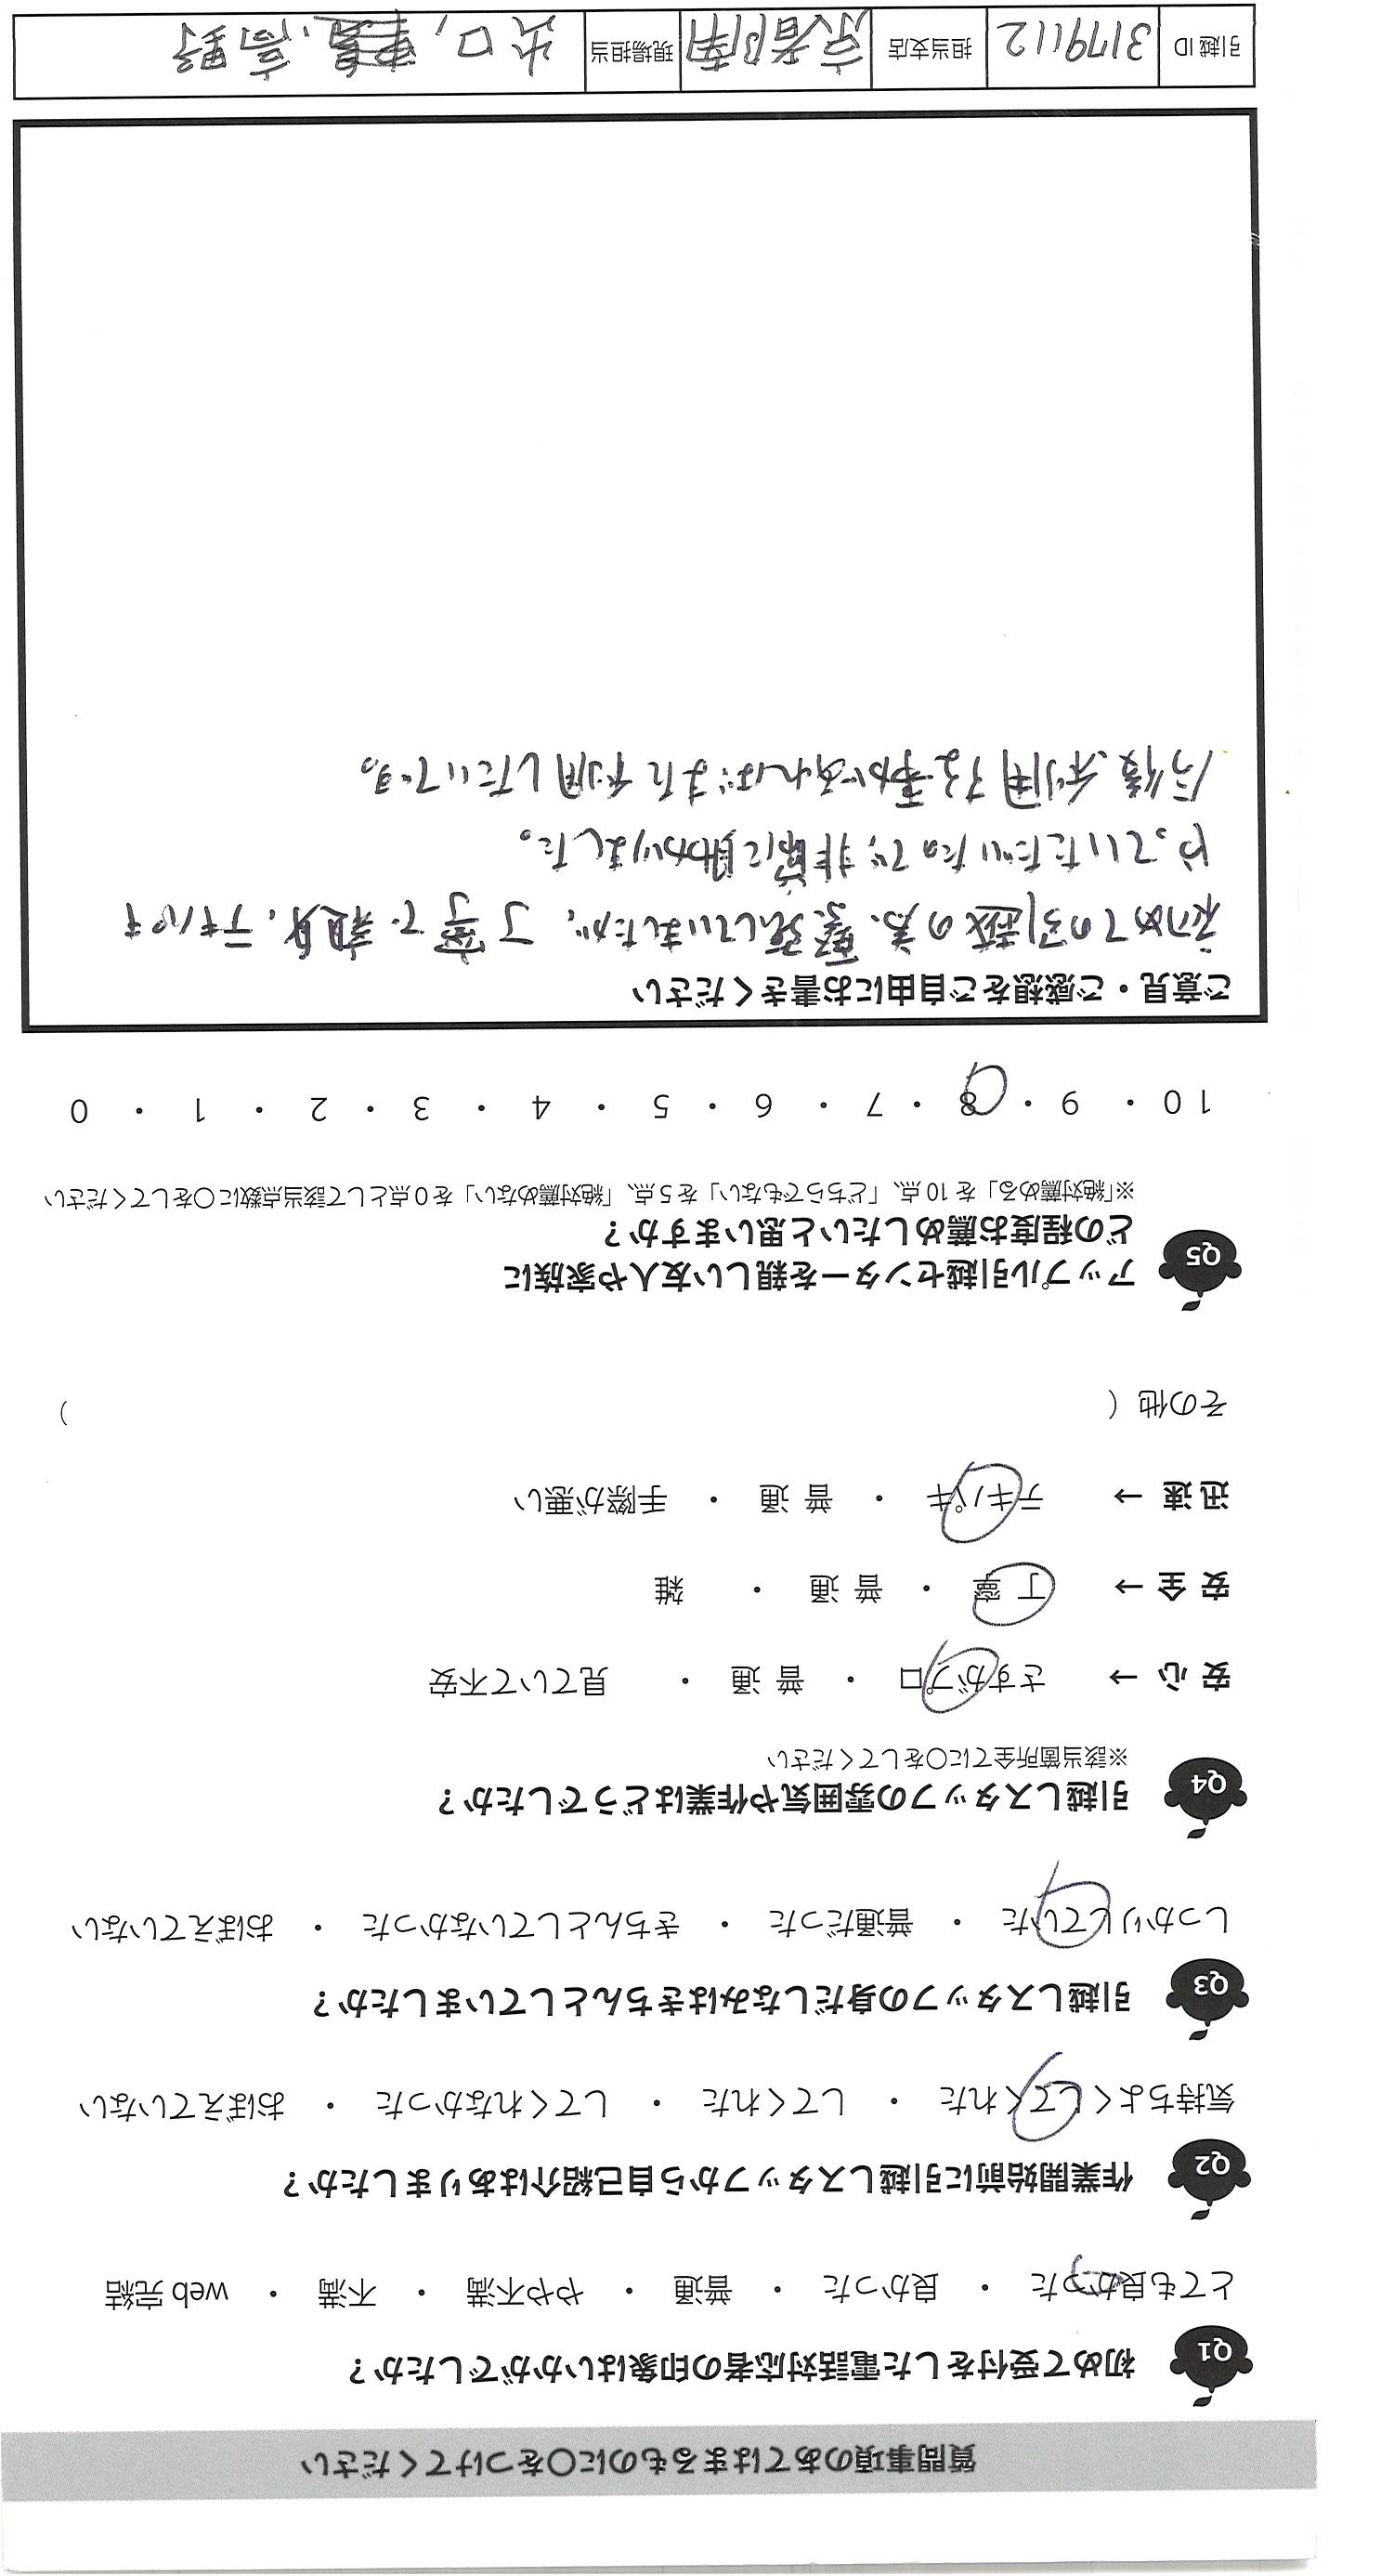 質問事項のあてはまるものに〇をつけてください
Q1 初めて受付をした電話対応者の印象はいかがでしたか？
とても良かった ・ 良かった ・ 普通 ・ やや不満 ・ 不満 ・ web 完結
Q2 作業開始前に引越しスタッフから自己紹介はありましたか？
気持ちよくしてくれた ・ してくれた ・ してくれなかった ・ おぼえていない
Q3 引越しスタッフの身だしなみはきちんとしていましたか？
しっかりしていた ・ 普通だった ・ きちんとしていなかった ・ おぼえていない
Q4 引越しスタッフの雰囲気や作業はどうでしたか？
※該当箇所全てに〇をしてください
安 心 → さすがプロ ・ 普 通 ・ 見ていて不安
安 全 → 丁 寧 ・ 普 通 ・ 雑
迅 速 → テキパキ ・ 普 通 ・ 手際が悪い
その他（ ）
Q5 アップル引越センターを親しい友人や家族に
どの程度お薦めしたいと思いますか？
※「絶対薦める」を 10 点、「どちらでもない」を 5 点、「絶対薦めない」を 0 点として該当点数に〇をしてください
10 ・ 9 ・ 8 ・ 7 ・ 6 ・ 5 ・ 4 ・ 3 ・ 2 ・ 1 ・ 0
ご意見・ご感想をご自由にお書きください
初めての引越の為、緊張していましたが、丁寧で親身、テキパキ
やっていただいたので、非常に助かりました。
今後、利用する事があればまた利用したいです。
引越 ID 3179112 担当支店 京都南 現場担当 出口, 高野